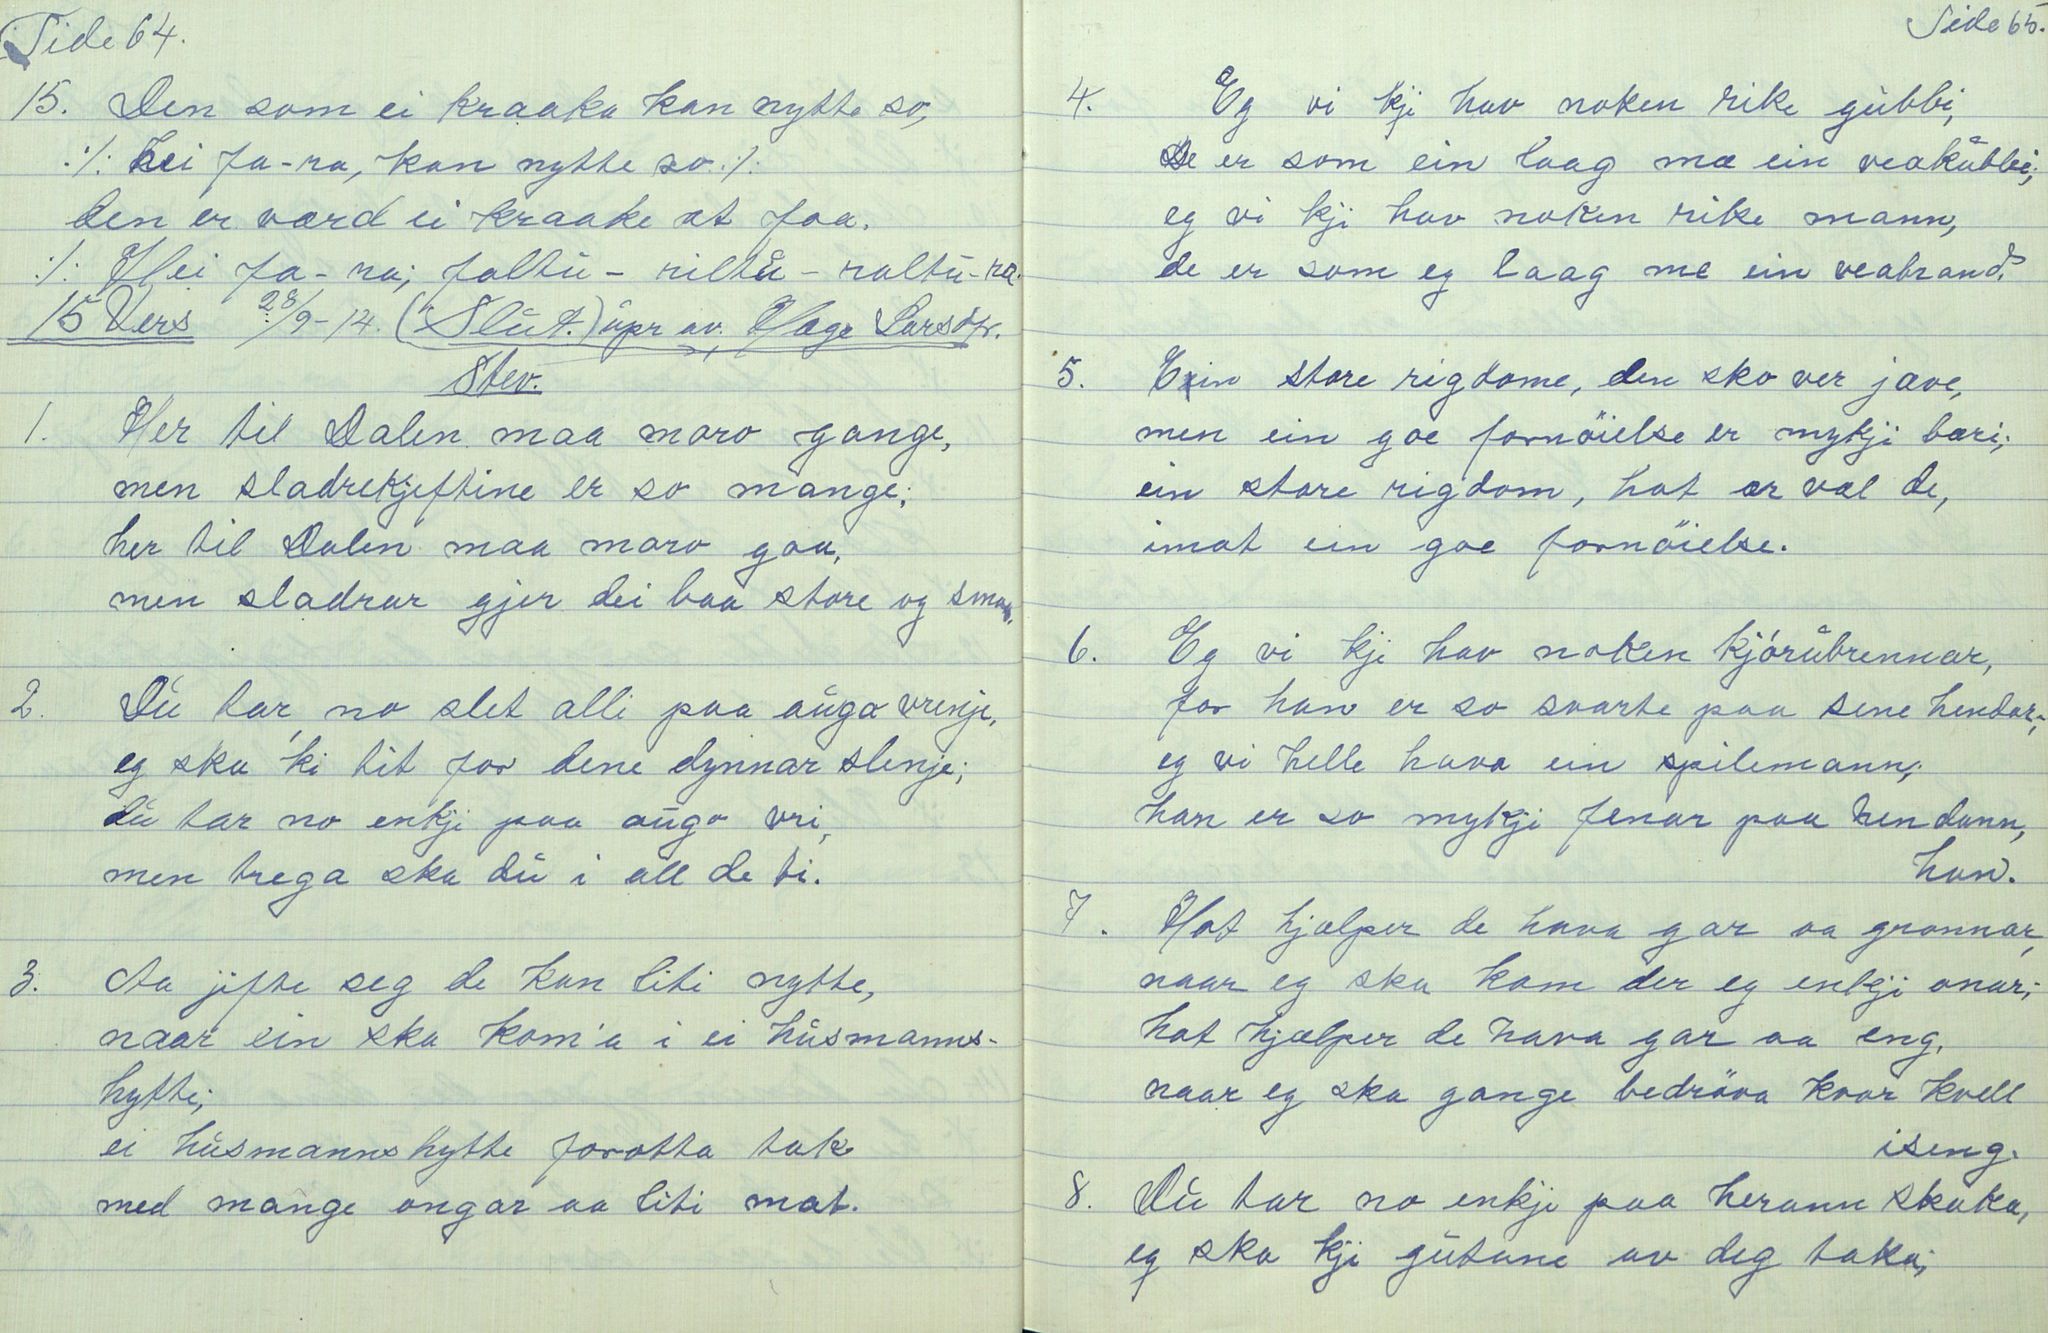 Side 64.
15. Den som ei kraaka kan nytte so,
:/: hei fa-ra, kan nytte so :/:
den er værd ei kraake at faa.
:/: Hei fa-ra; faltu-riltu-raltu-ra.
15 Vers 28/9-14. (Slut.) upr av. Hæge Larsdtr.
Stev.
1. Her til Dalen maa moro gange,
men sladrekjeftine er so mange;
her til Dalen maa moro gaa,
men sladrar gjer dei baa store og smaa.
2. Du tar no slet alli paa augo vrenje,
eg ska 'ki tit for dene dynnar slenje;
du tar no enkji paa augo vri,
men trega ska du i all de ti.
3. Aa jifte seg de kan liti nytte,
naar ein ska kom'a i ei husmanns-
hytte;
ei husmannshytte forotta tak
med mange ongar aa liti mat.
Side 65.
4. Eg vi kji hav noken rike gubbi,
de er som ein laag mæ ein veakubbi;
eg vi kji hav noken rike mann,
de er som eg laag me ein veabrand.
5. Ein store rigdome, den sko ver jæve,
men ein goe fornöielse er mykji bæri;
ein store rigdom, hot er væl de,
imot ein goe fornöielse.
6. Eg vi kji hav noken kjórubrennar,
for han er so svarte paa sene hendar;
eg vi helle hava ein spilemann;
han er so mykji fenar paa hendann,
han.
7. Hot hjælper de hava gar aa grannar,
naar eg ska kom der eg enkji onar;
hot hjælper de hava gar aa eng,
naar eg ska gange bedröva kvar kvell
iseng.
8. Du tar no enkji paa herann skaka,
eg ska kji gutane av deg taka;